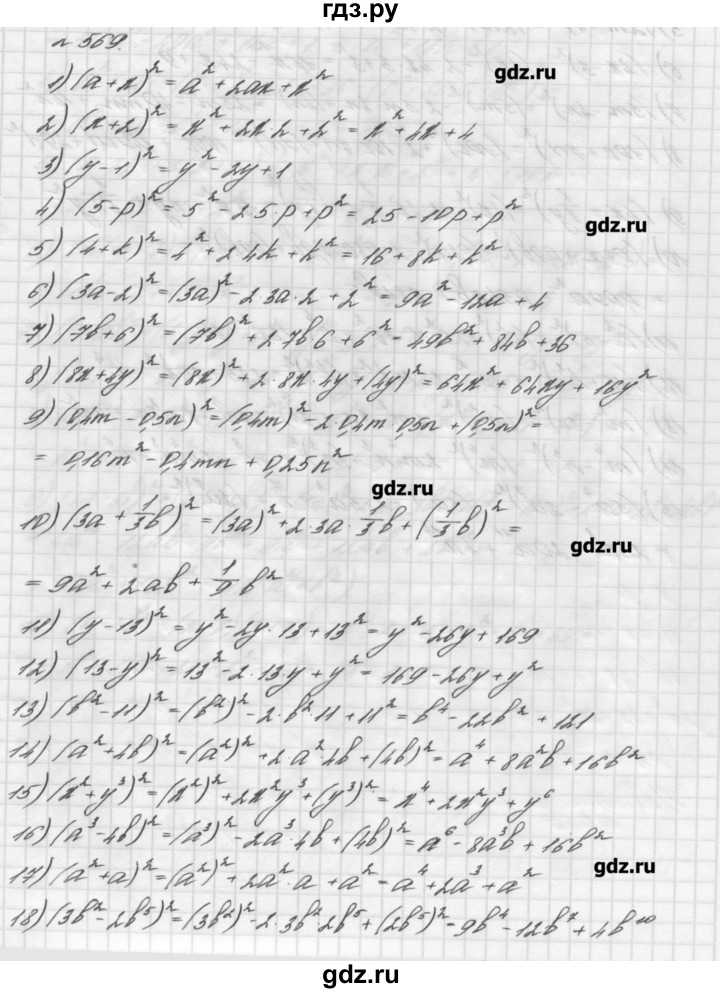 гдз.ру
№ 569.
gdz.ru
1) (a+x)² = a² + 2ax + x²
2) (x+2)² = x² + 2x·2 + 2² = x² + 4x + 4
3) (y-1)² = y² - 2y + 1
4) (5-p)² = 5² - 2·5·p + p² = 25 - 10p + p²
gdz.ru
5) (4+k)² = 4² + 2·4k + k² = 16 + 8k + k²
6) (3a-2)² = (3a)² - 2·3a·2 + 2² = 9a² - 12a + 4
7) (7b+6)² = (7b)² + 2·7b·6 + 6² = 49b² + 84b + 36
8) (8x+4y)² = (8x)² + 2·8x·4y + (4y)² = 64x² + 64xy + 16y²
9) (0,4m - 0,5n)² = (0,4m)² - 2·0,4m·0,5n + (0,5n)² =
= 0,16m² - 0,4mn + 0,25n²
gdz.ru
10) (3a + 1/3b)² = (3a)² + 2·3a·1/3b + (1/3b)² =
gdz.ru
= 9a² + 2ab + 1/9b²
11) (y-13)² = y² - 2y·13 + 13² = y² - 26y + 169
12) (13-y)² = 13² - 2·13y + y² = 169 - 26y + y²
13) (b²-11)² = (b²)² - 2·b²·11 + 11² = b⁴ - 22b² + 121
14) (a²+4b)² = (a²)² + 2·a²·4b + (4b)² = a⁴ + 8a²b + 16b²
15) (x²+y³)² = (x²)² + 2x²y³ + (y³)² = x⁴ + 2x²y³ + y⁶
16) (a³-4b)² = (a³)² - 2a³·4b + (4b)² = a⁶ - 8a³b + 16b²
gdz.ru
17) (a²+a)² = (a²)² + 2a²·a + a² = a⁴ + 2a³ + a²
18) (3b²-2b⁵)² = (3b²)² - 2·3b²·2b⁵ + (2b⁵)² = 9b⁴ - 12b⁷ + 4b¹⁰
gdz.ru